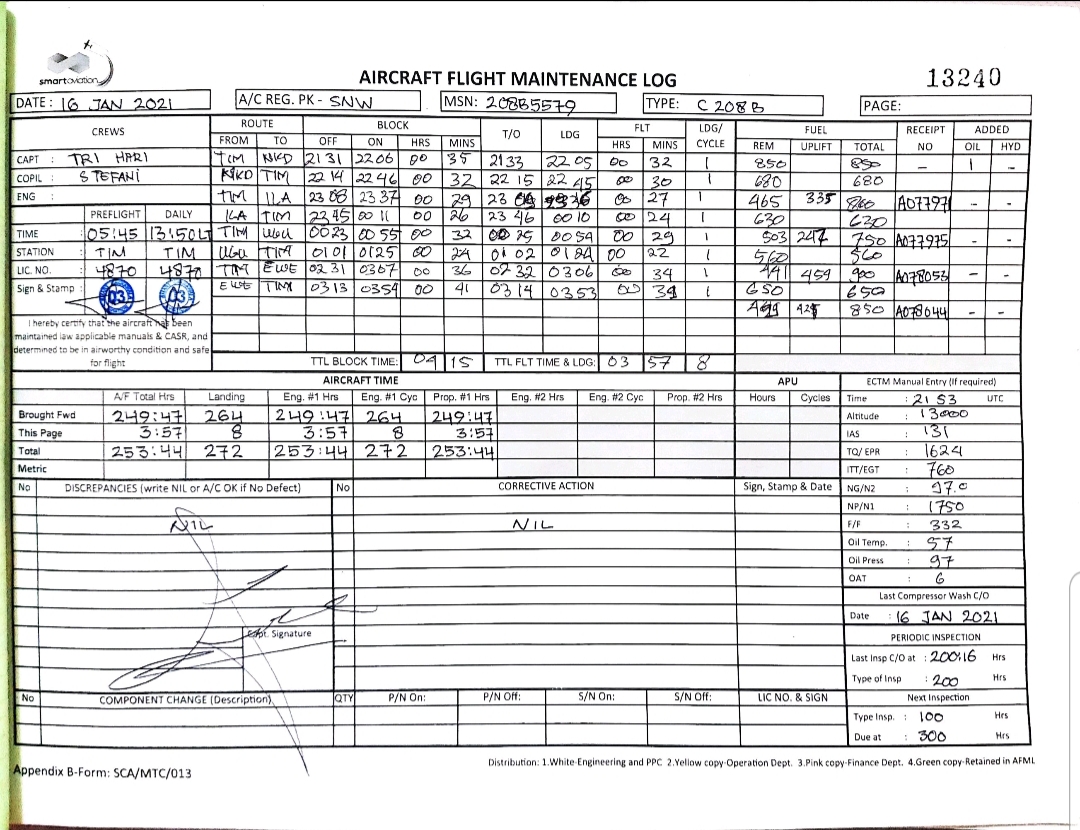 smartaviation
AIRCRAFT FLIGHT MAINTENANCE LOG 13240
DATE : 16 JAN 2021 A/C REG. PK - SNW MSN: 208B5579 TYPE: C 208 B PAGE:
CREWS ROUTE BLOCK T/O LDG FLT LDG/ CYCLE FUEL RECEIPT NO ADDED
FROM TO OFF ON HRS MINS HRS MINS REM UPLIFT TOTAL OIL HYD
CAPT : TRI HARI TIM NKD 2131 2206 00 35 2133 2205 00 32 1 850 850 - 1
COPIL : STEFANI NKD TIM 22 14 22 46 00 32 22 15 22 45 00 30 1 680 680
ENG : TIM ILA 23 08 23 37 00 29 23 00 27 1 465 335 A077971 - -
PREFLIGHT DAILY ILA TIM 22 45 00 11 00 26 23 46 00 10 00 24 1 630 630
TIME 05:45 13:50LT TIM UGU 0023 00 55 00 32 00 25 0054 00 29 1 503 247 750 A077975 - -
STATION TIM TIM UGU TIM 01 01 0125 00 24 01 02 00 22 1 560 560
LIC. NO. 4870 4870 TIM EWE 02 31 0307 00 36 02 32 0306 00 34 1 441 459 900 A078053 - -
Sign & Stamp : 03 03 EWE TIM 0313 0354 00 41 0314 0353 00 39 1 650 650
850 A078044 - -
I hereby certify that the aircraft has been
maintained law applicable manuals & CASR, and
determined to be in airworthy condition and safe
for flight
TTL BLOCK TIME: 04 15 TTL FLT TIME & LDG: 03 57 8
AIRCRAFT TIME APU ECTM Manual Entry (If required)
A/F Total Hrs Landing Eng. #1 Hrs Eng. #1 Cyc Prop. #1 Hrs Eng. #2 Hrs Eng. #2 Cyc Prop. #2 Hrs Hours Cycles Time : 21 53 UTC
Brought Fwd 249:47 264 249:47 264 249:47 Altitude : 13000
This Page 3:57 8 3:57 8 3:57 IAS : 131
Total 253:44 272 253:44 272 253:44 TQ/ EPR : 1624
Metric ITT/EGT : 760
No DISCREPANCIES (write NIL or A/C OK if No Defect) No CORRECTIVE ACTION Sign, Stamp & Date NG/N2 : 97.0
NIL NIL NP/N1 : 1750
F/F : 332
Oil Temp. : 57
Oil Press : 97
OAT : 6
Last Compressor Wash C/O
Date : 16 JAN 2021
Cpt. Signature
PERIODIC INSPECTION
Last Insp C/O at : 200:16 Hrs
Type of Insp : 200 Hrs
No COMPONENT CHANGE (Description) QTY P/N On: P/N Off: S/N On: S/N Off: LIC NO. & SIGN Next Inspection
Type Insp. : 100 Hrs
Due at : 300 Hrs
Distribution: 1.White-Engineering and PPC 2.Yellow copy-Operation Dept. 3.Pink copy-Finance Dept. 4.Green copy-Retained in AFML
Appendix B-Form: SCA/MTC/013